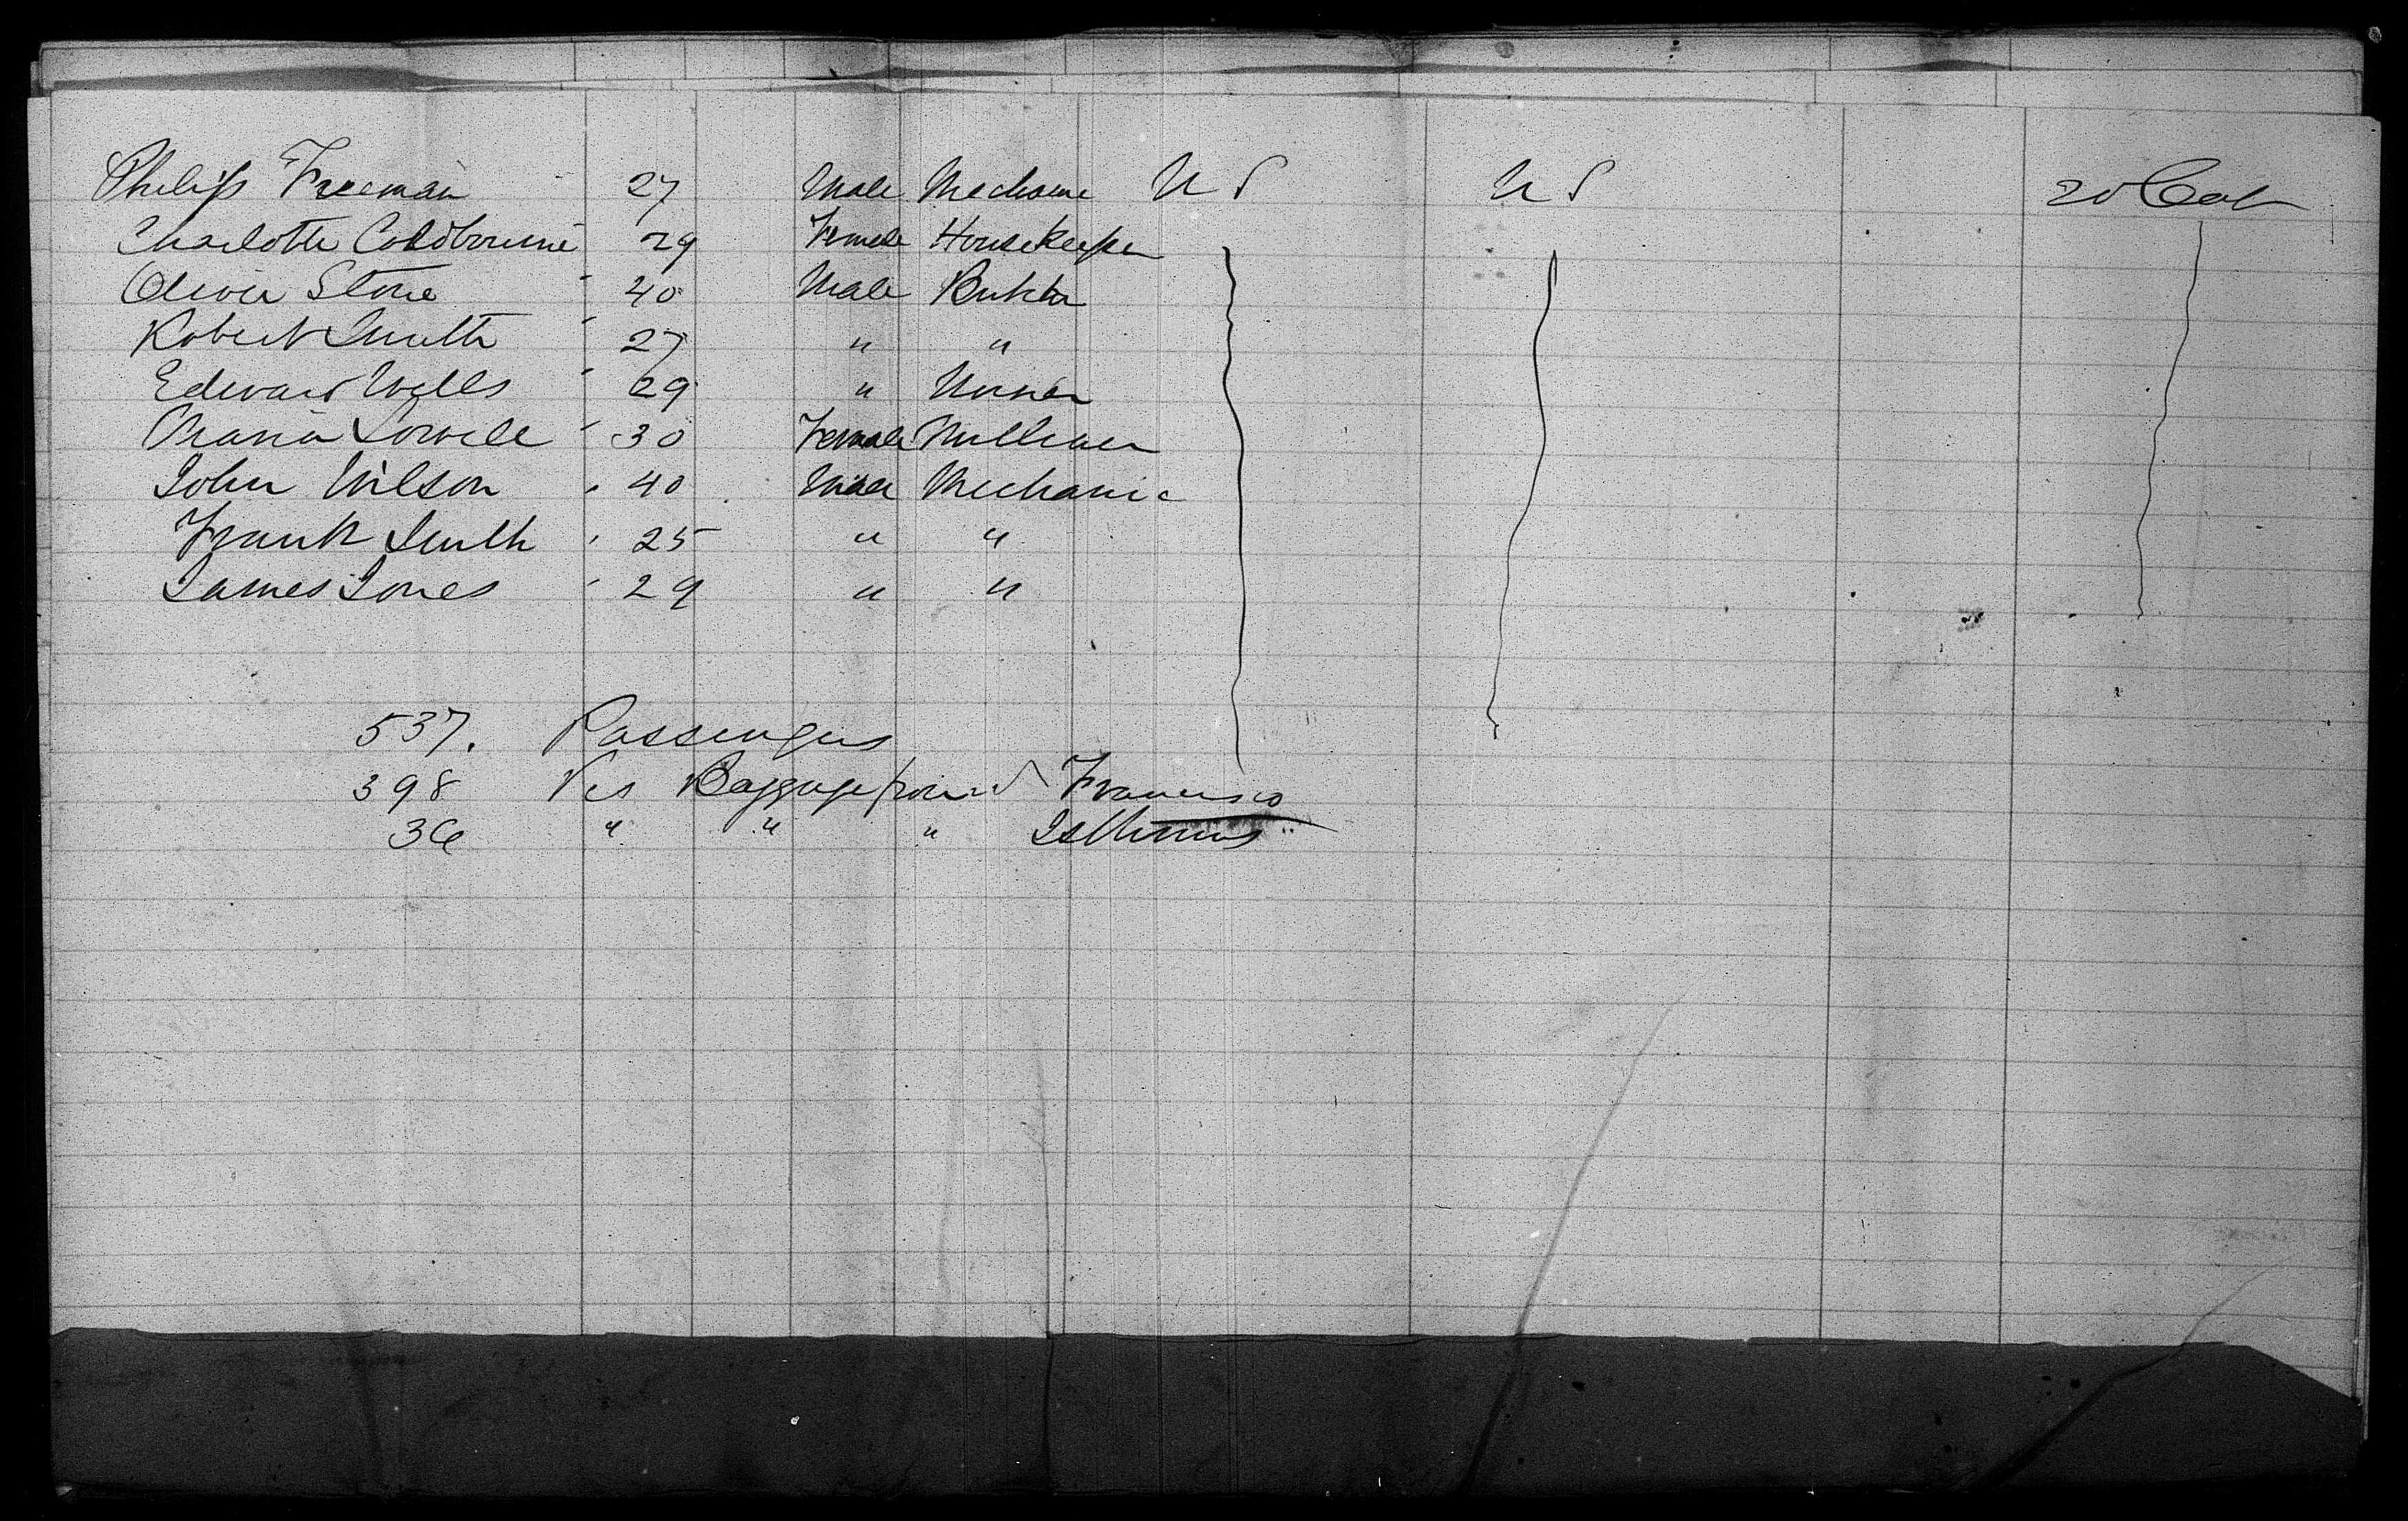 Philip Freeman 27 Male Mechanic U S U S 2d Cab
Charlotte Coldbourne 29 Female Housekeeper
Oliver Stone 40 Male Butcher
Robert Smith 27 " "
Edward Wells 29 "
Maria Lowell 30 Female Milliner
John Wilson 40 Male Mechanic
Frank Smith 25 " "
James Jones 29 " "
537. Passengers
398 Pcs Baggage from S Francisco
36 " " " Isthmus